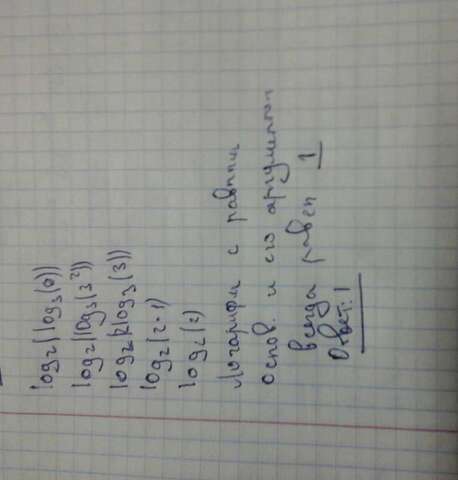 log₂(log₃(9))
log₂(log₃(3²))
log₂(2log₃(3))
log₂(2·1)
log₂(2)
Логарифм с равным
основ. и его аргументом
всегда равен 1
Ответ: 1